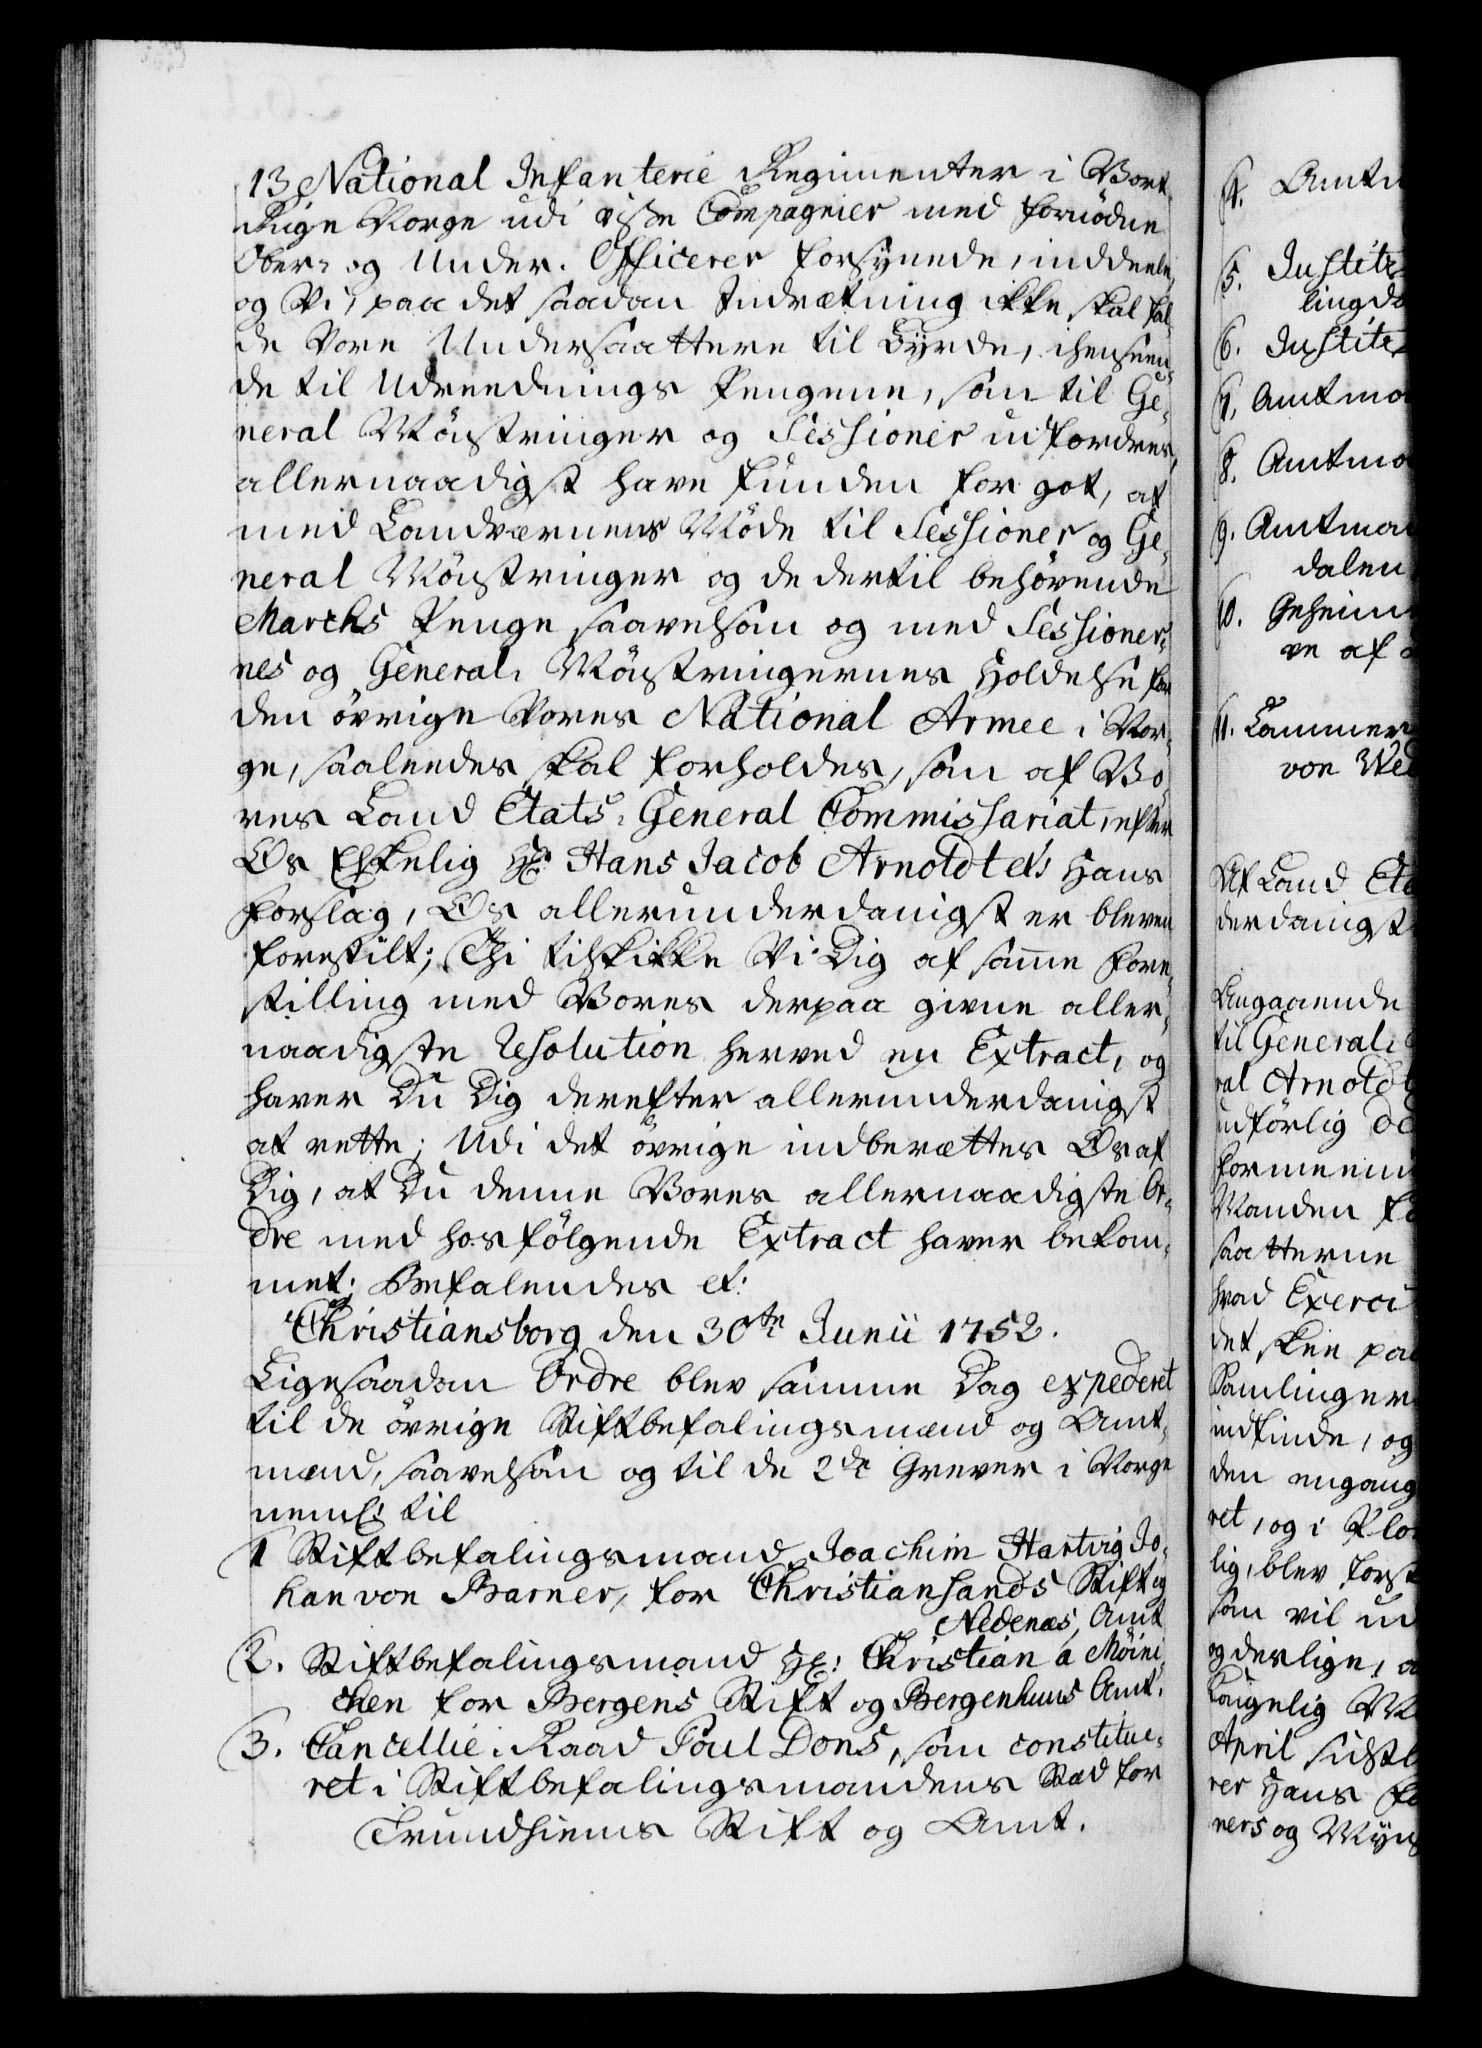 13 National Infanterie Regimenter i Vort
Rige Norge udi visse Compagnier med fornödne
Ober- og Under-Officerer forsÿnede, inddeele,
og Vi, paa det saadan Indretning ikke skal fal-
de Vore Undersaattere til Bÿrde, i henseen-
de til Udreednings Pengene, som til Ge-
neral Mönstringer og Sessioner udfordres,
allernaadigst have funden for got, at
med Landværnens Möde til Sessioner og Ge-
neral Mönstringer og de dertil behövende
Marchs Penge saavelsom og med Sessioner-
nes og General-Mönstringernes Holdelse for
den övrige Vores National Armee i Nor-
ge, saaleedes skal forholdes, som af Vo-
res Land Etats-General Commissariat, efter
Os Elskelig Hr: Hans Jacob Arnoldtes Hans
Forslag, Os allerunderdanigst er bleven
forestilt; Thi tilskikke Vi Dig af samme Fore-
stilling med Vores derpaa givne aller-
naadigste Resolution herved en Extract, og
haver Du Dig derefter allerunderdanigst
at rette; Udi det övrige indberættes Os af
Dig, at Du denne Vores allernaadigste Or-
dre med hosfölgende Extract haver bekom-
met; Befalendes etc:
Christiansborg den 30te Junii 1752.
Ligesaadan Ordre blev samme Dag expederet
til de övrige Stiftbefalingsmænd og Amt-
mænd, saavelsom og til de 2de Grever i Norge
neml: til
1 Stiftbefalingsmand Joachim Hartvig Jo-
han von Barner, for Christiansands Stift og
Nedenæs Amt
2. Stiftbefalingsmand Hr: Christian a Möini-
chen for Bergens Stift og Bergenhuus Amt.
3. Cancellie-Raad Poul Dons, som constitue-
ret i Stiftbefalingsmandens Stæd for
Trundhiems Stift og Amt.
4. Amtm
5. Justitz
lingda
6. Justitz
7. Amtma
8. Amtma
9. Amtman
dalen
10. Geheim
ve af
11. Cammer
von Wed
Af Land Eta
derdanigst
Angaaende
til General-
ral Arnoldt
udförlig
formeen
Manden
saatterne
hvad Exerci
det skee paa
Samlinger
indfinde, og
den engang
ret, og i
lig, blev forst
som vil ud
og derlige,
Kongelig
April sidstl
rer Hans
ners og Mÿn